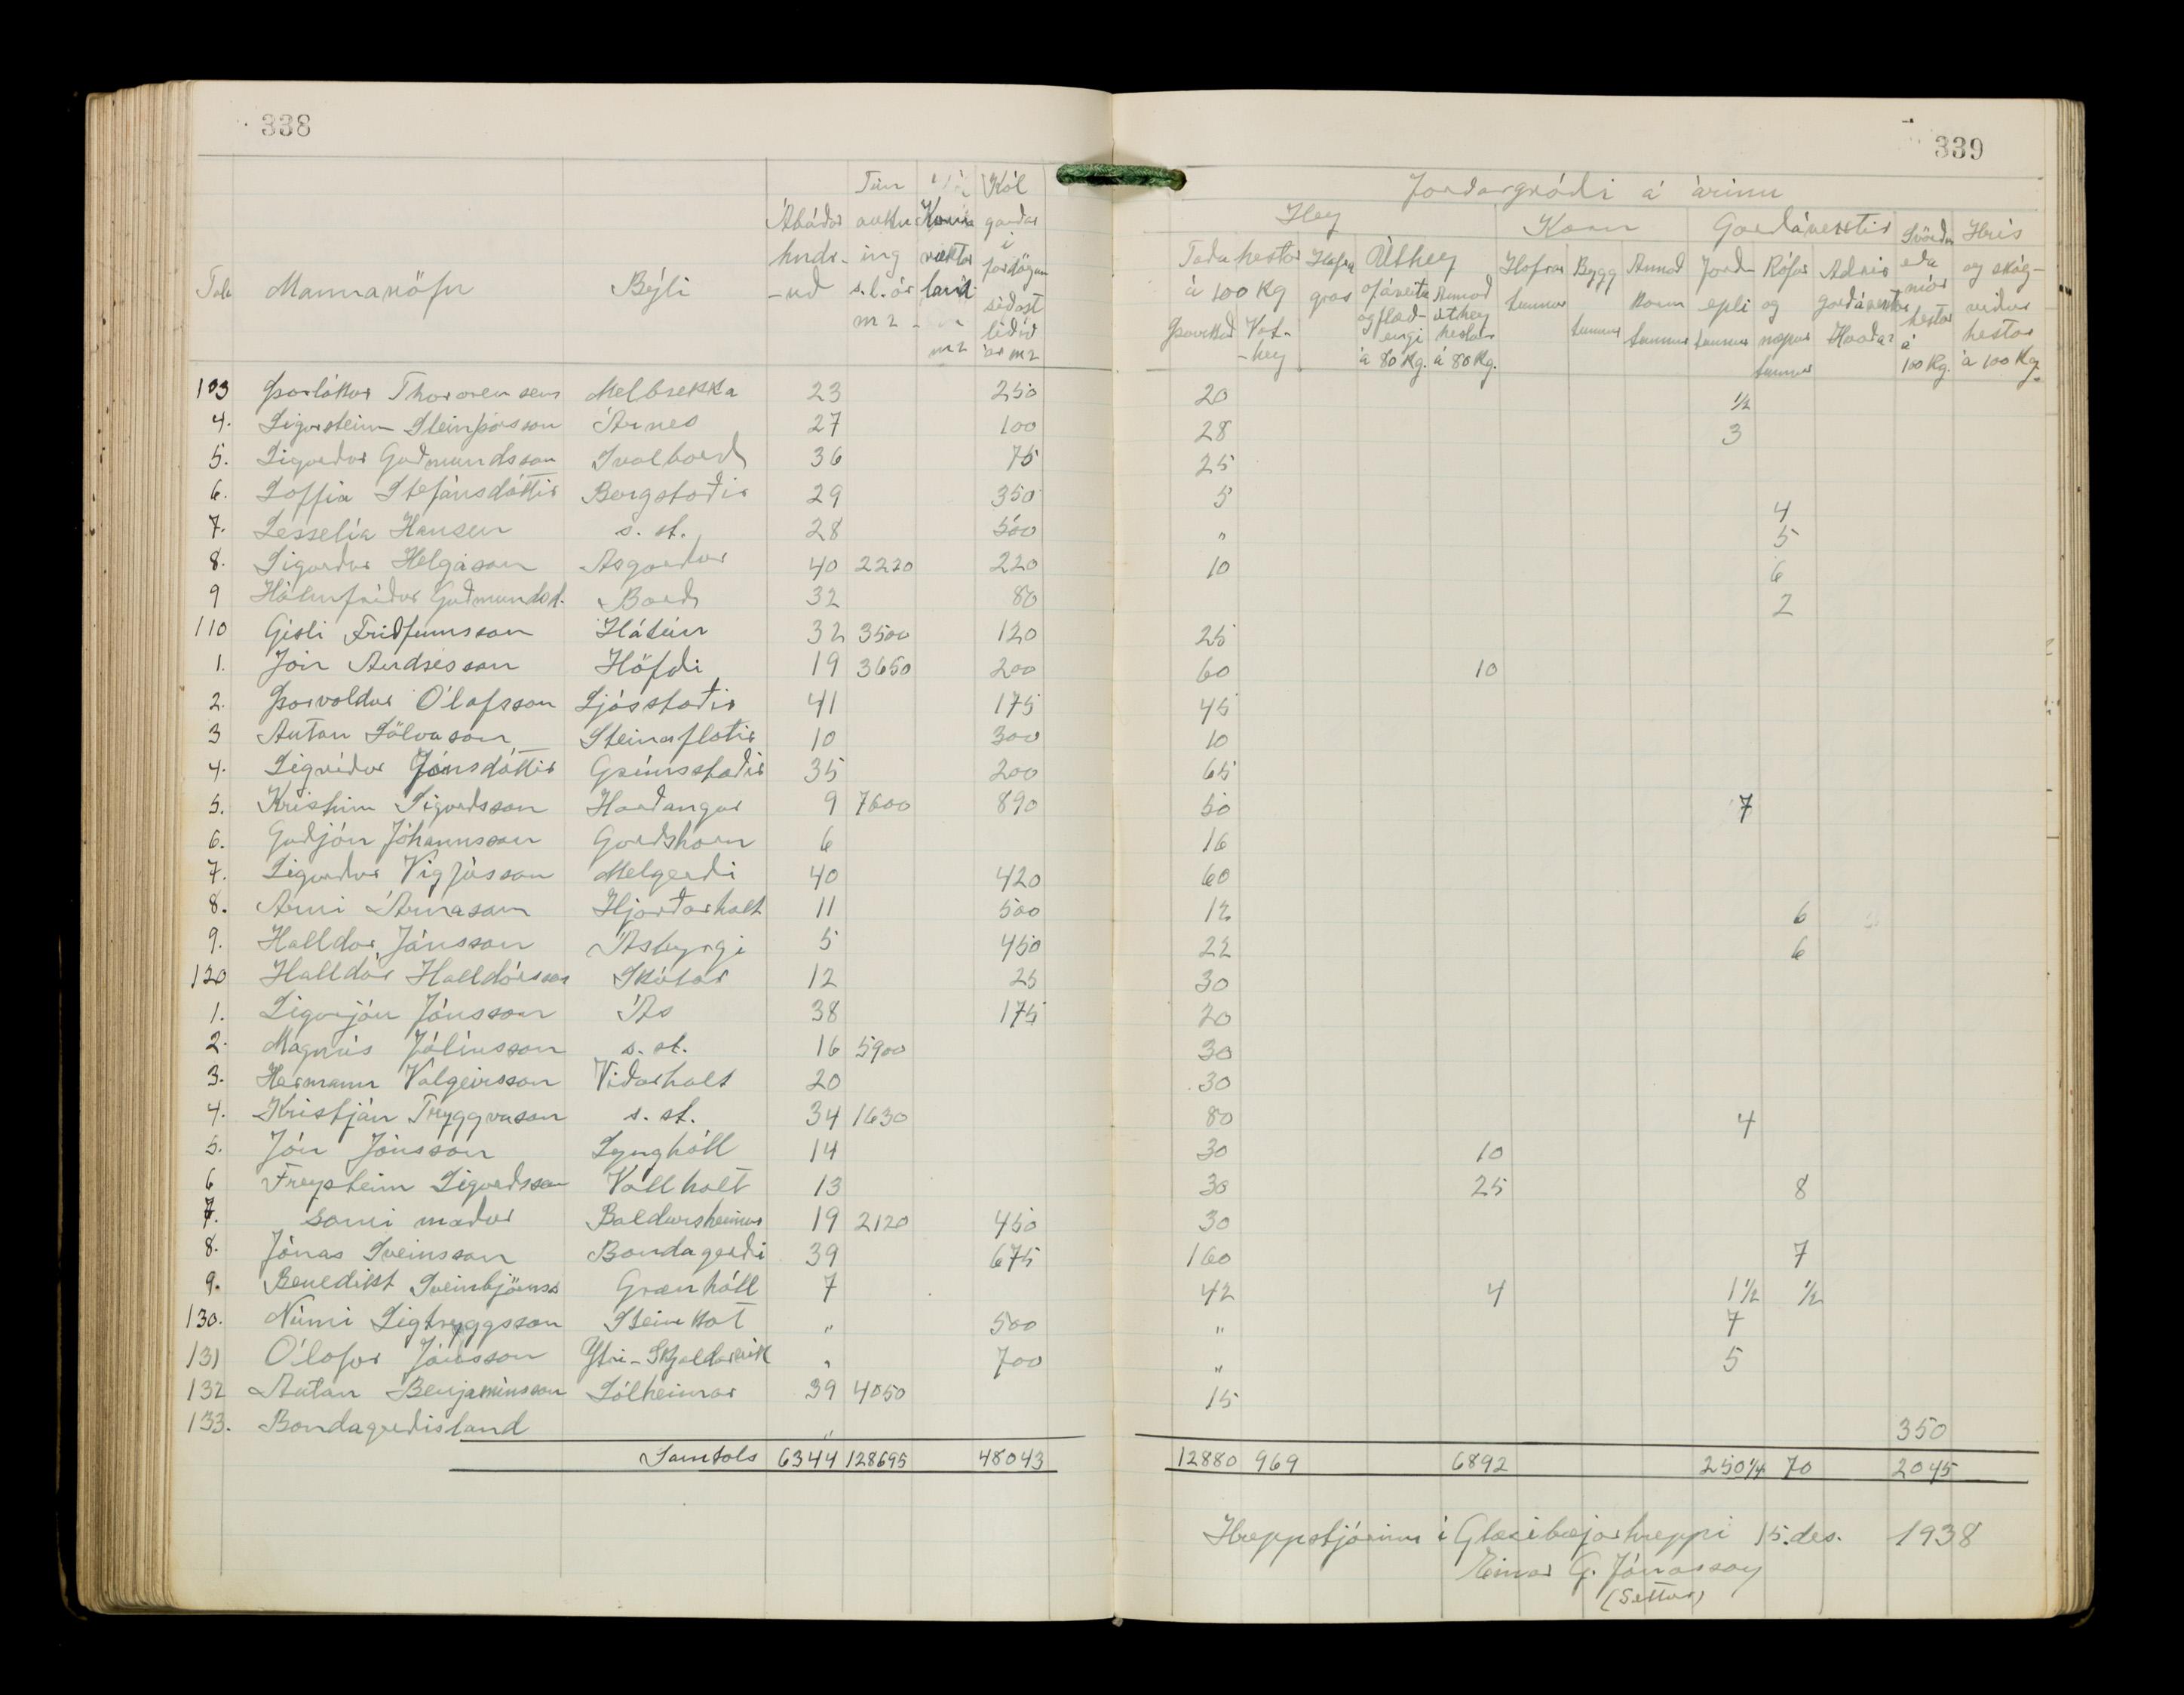 338
339
Tala Mannanöfn Býli Ábúðar hndr-uð Tún aukning s.l. ár m2 Korn ræktar land m2 Kál garðar í fardögum síðast liðið ár m2
Jarðargróði á árinu
Hey Korn Garðávextir Svörður eða mór hestar á 100 Kg. Hrís og skógviður hestar á 100 Kg.
Taða hestar á 100 Kg Þurrkað Vothey Hafragras Úthey af áveitu og flæðengi á 80 Kg. Annað úthey hestar á 80 Kg. Hafrar tunnur Bygg tunnur Annað korn tunnur Jarðepli tunnur Rófur og næpur tunnur Aðrir garðávextir
103 Þorlákur Thorarensen Melbrekka 23 250 20 ½
4. Sigursteinn Steinþórsson Árnes 27 100 28 3
5. Sigurður Guðmundsson Svalbarð 36 75 25
6. Soffía Stefánsdóttir Bergstaðir 29 350 5 4
7. Sesselía Hansen s. st. 28 500 " 5
8. Sigurður Helgason Ásgarður 40 2220 220 10 6
9 Hólmfríður Guðmundsd. Barð 32 80 2
110 Gísli Friðfinnsson Hátún 32 3500 120 25
1. Jón Andrésson Höfði 19 3650 200 60 10
2. Þorvaldur Ólafsson Ljósstaðir 41 175 45
3 Antan Sölvason Steinaflatir 10 300 10
4. Sigríður Jónsdóttir Grímsstaðir 35 200 65
5. Kristinn Sigurðsson Harðangur 9 7600 890 50 7
6. Guðjón Jóhannsson Garðshorn 6 16
7. Sigurður Vigfússon Melgerði 40 420 60
8. Árni Árnason Hjarðarholt 11 500 12 6
9. Halldór Jónsson Ásbyrgi 5 450 22 6
120 Halldór Halldórsson Skútar 12 25 30
1. Sigurjón Jónsson Ás 38 175 20
2. Magnús Júlíusson s. st. 16 5900 30
3. Hermann Valgeirsson Viðarholt 20 30
4. Kristján Tryggvason s. st. 34 1630 80 4
5. Jón Jónsson Lynghóll 14 30 10
6 Freysteinn Sigurðsson Vallholt 13 30 25 8
7. sami maður Baldursheimur 19 2120 450 30
8. Jónas Sveinsson Bandagerði 39 675 160 7
9. Benedikt Sveinbjörnss Grænhóll 7 42 4 1½ ½
130. Númi Sigtryggsson Steinkot " 500 " 7
131 Ólafur Jónsson Ytri-Skjaldarvík " 700 " 5
132 Antan Benjamínsson Sólheimar 39 4050 15
133. Bandagerðisland " 350
Samtals 6344 128695 48043 12880 969 6892 250¼ 70 2045
Hreppstjórinn í Glæsibæjarhreppi 15. des. 1938
Einar G. Jónasson
(Settur)